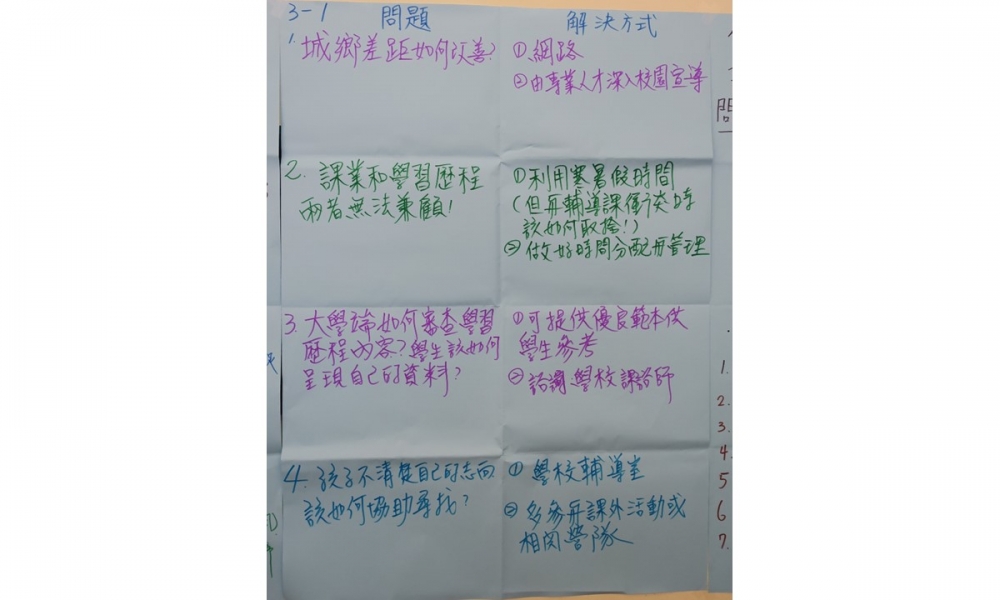 3-1 問題 解決方式
1. 城鄉差距如何改善?
① 網路
② 由專業人才深入校園宣導
2. 課業和學習歷程
兩者無法兼顧!
① 利用寒暑假時間
(但再輔導課衝突時
該如何取捨!)
② 做好時間分配再管理
3. 大學端如何審查學習
歷程內容?學生該如何
呈現自己的資料?
① 可提供優良範本供
學生參考
② 諮詢學校課諮師
4. 孩子不清楚自己的志向
該如何協助尋找?
① 學校輔導室
② 多參再課外活動或
相関營隊
問
1.
2.
3.
4
5
6
7.